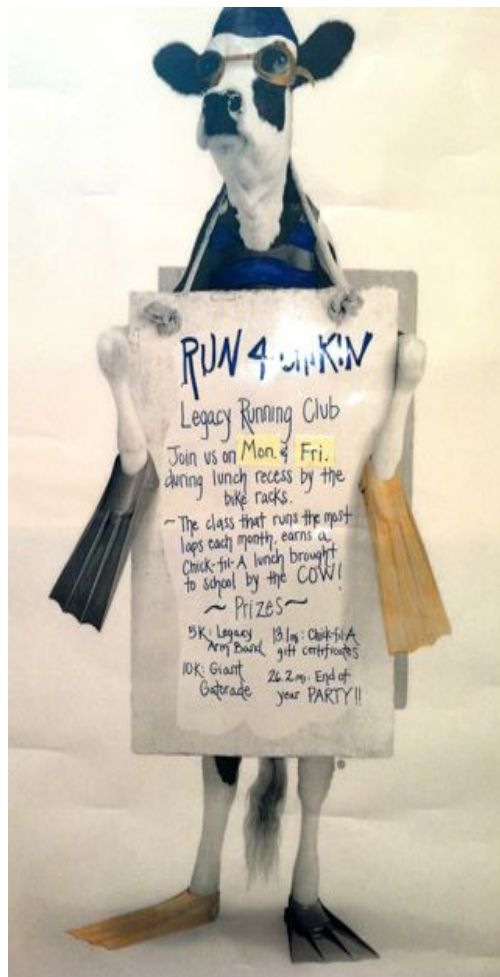 RUN 4 CHIKIN
Legacy Running Club
Join us on Mon. & Fri.
during lunch recess by the
bike racks.
~ The class that runs the most
laps each month, earns a
Chick-fil-A lunch brought
to school by the COW!
~ Prizes ~
5K: Legacy
Arm Band
13.1 mi: Chick-fil-A
gift certificates
10K: Giant
Gatorade
26.2 mi: End of
year PARTY!!
®